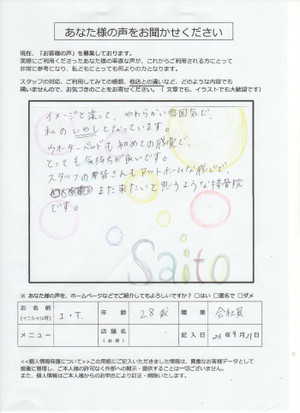 あなた様の声をお聞かせください
現在、「お客様の声」を募集しております。
実際にご利用くださったあなた様の率直な声が、これからご利用される方にとって
非常に参考になり、私どもにとっても何よりの力となります。
スタッフの対応、ご利用してみての感想、他店との違いなど、どのような内容でも
構いませんので、お気づきのことをお寄せください。（文章でも、イラストでも大歓迎です）
イメージと違って、やわらかい雰囲気で、
私のいやしとなっています。
ウォーターベッドも初めての感覚で、
とっても気持ちが良いです。
スタッフの皆さんもアットホームな感じで、
また来たいと思うような接骨院
です。
Saito
※ あなた様の声を、ホームページなどでご紹介してもよろしいですか？ □はい □匿名で □ダメ
お名前 (イニシャル可) I・T. 年齢 28歳 職業 会社員
メニュー 店舗名 (必須) 記入日 25年9月21日
<<個人情報保護について>>この用紙にご記入いただきました情報は、貴重なお客様データとして
厳重に管理し、ご本人様の許可なく外部への開示・提供することは一切ございません。
また、個人情報はご本人様からのお申出により訂正・削除いたします。